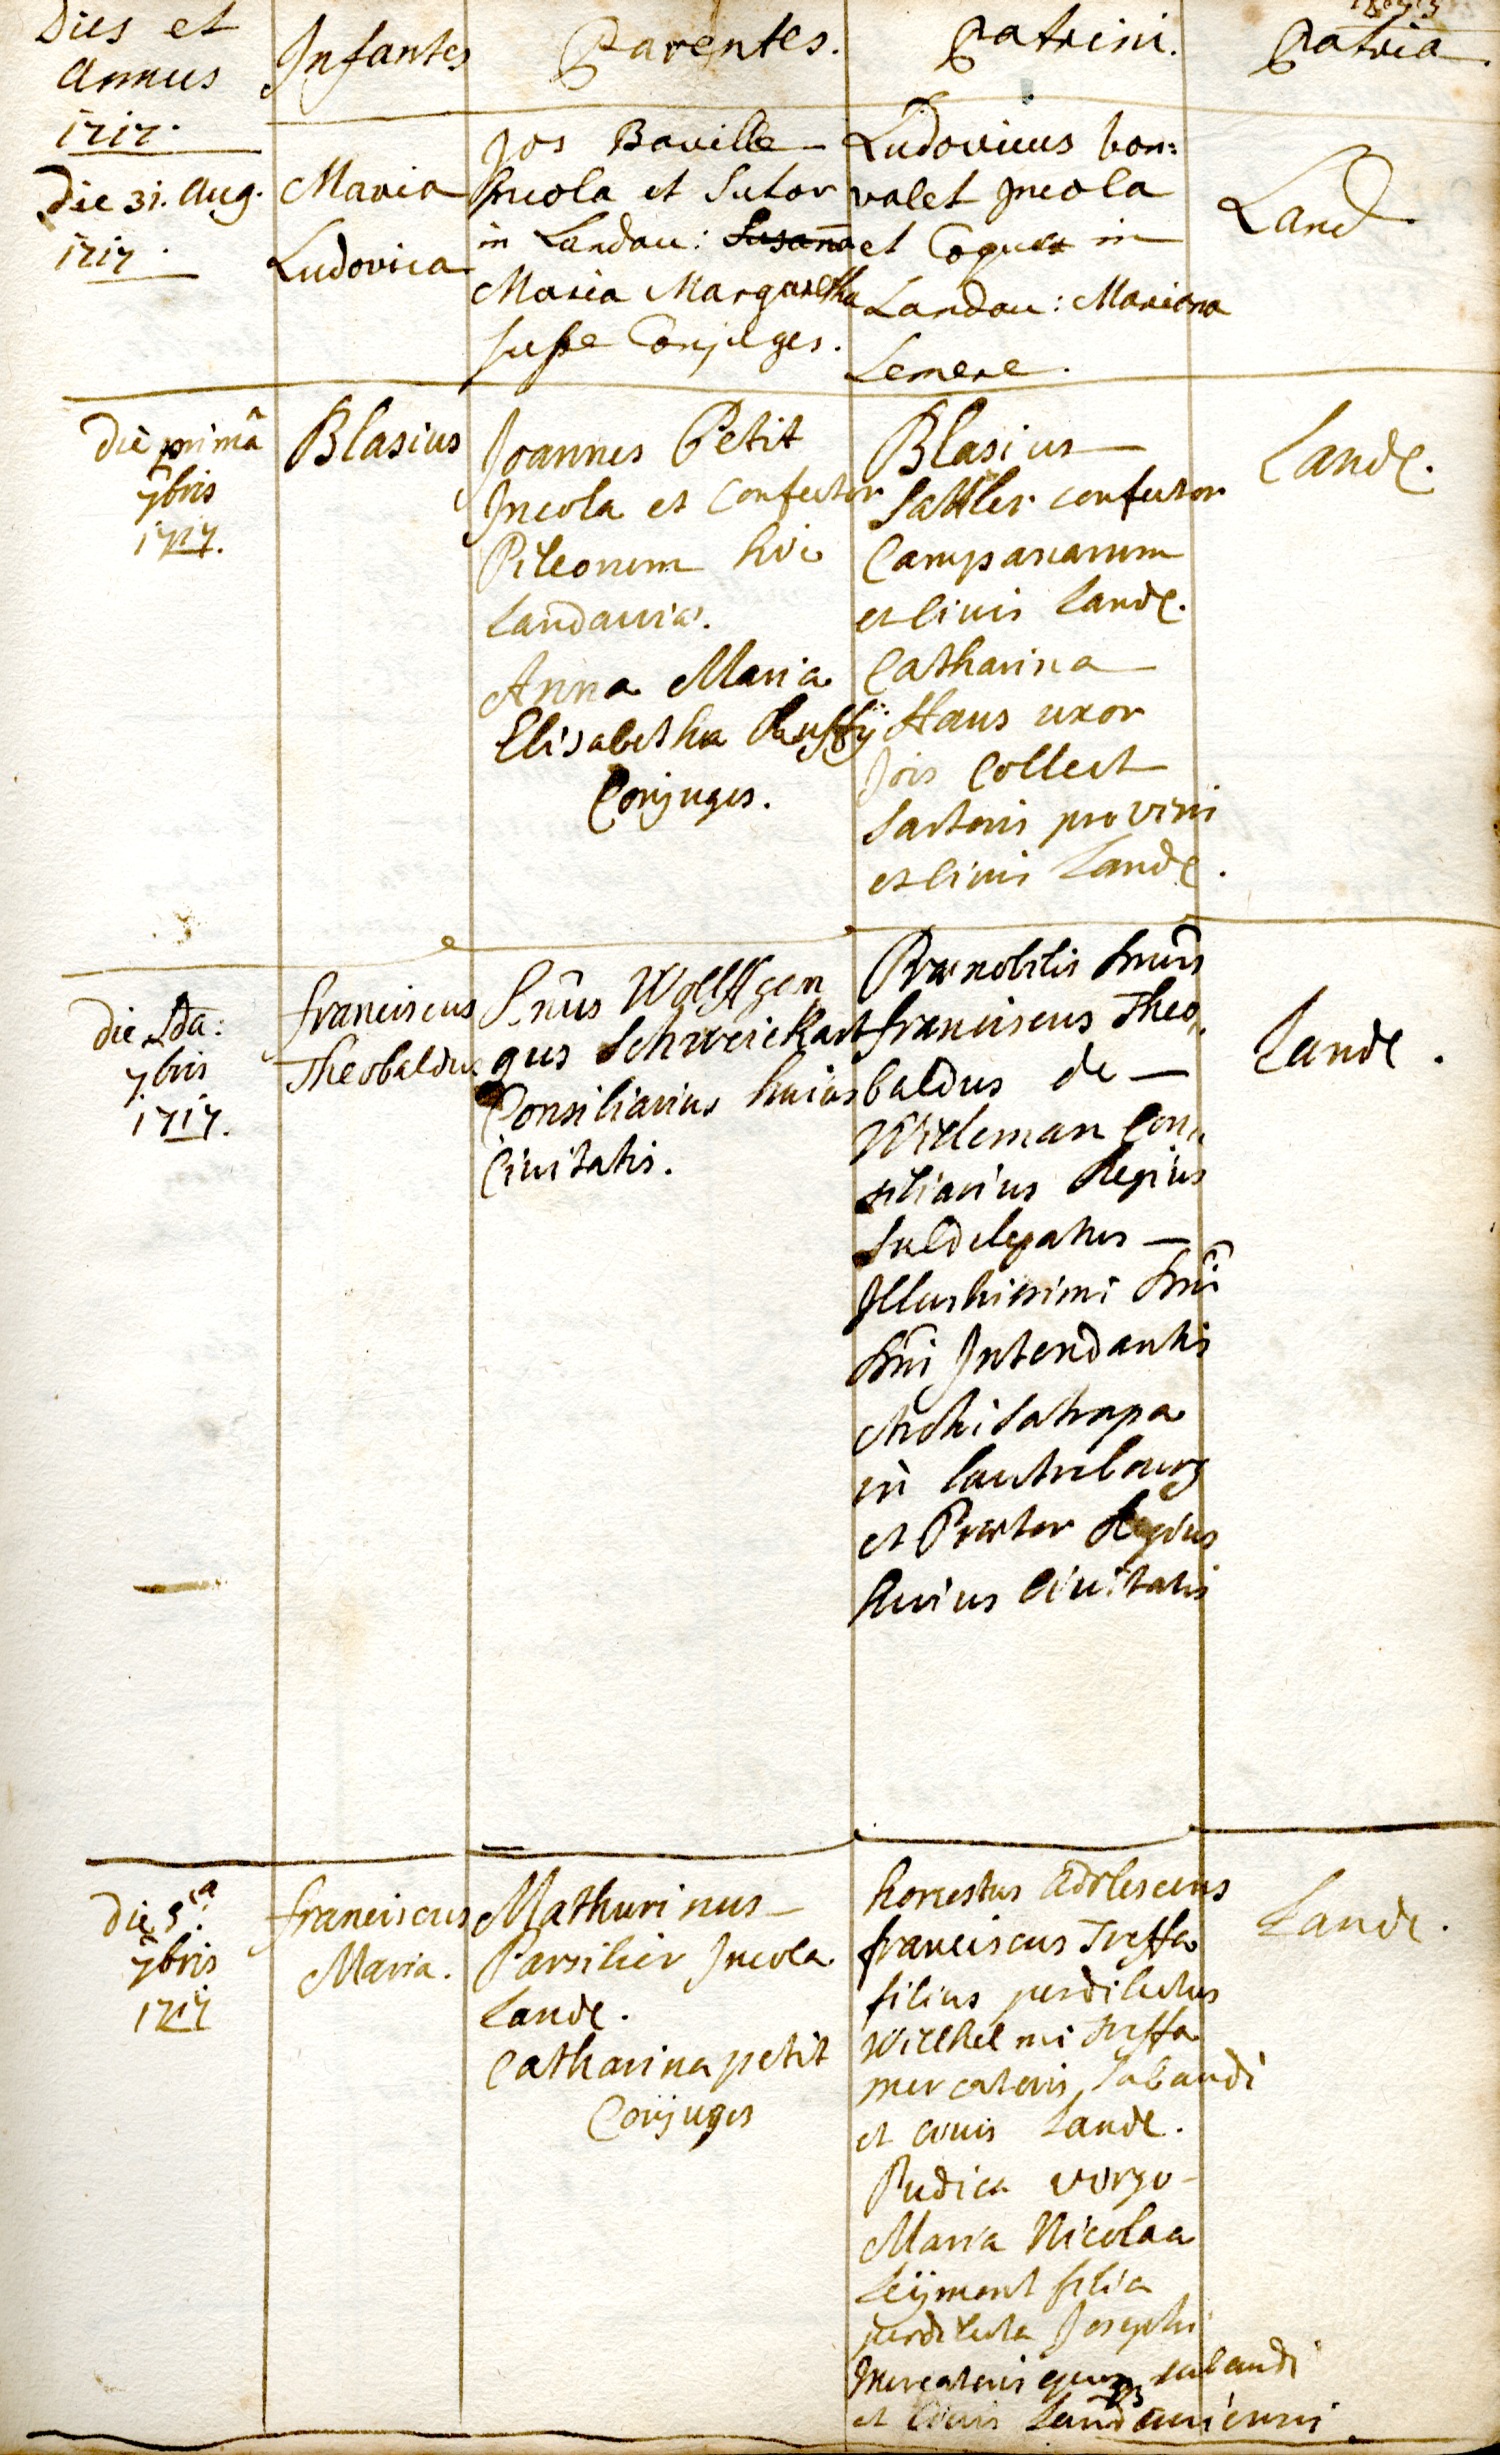 Dies et
Annus
1717.
Infantes
Parentes.
Patrini.
Patria.
Die 31. Aug.
1717.
Maria
Ludovica
Jos Baville
Incola et Sutor
in Landau: Susana
Maria Margaretha
Conjuges.
Ludovicus bon:
valet Incola
et Coquus in
Landau: Mariana
Lemere.
Land
die primâ
7bris
1717.
Blasius
Joannes Petit
Incola et Confector
Pileorum hic
Landaviæ.
Anna Maria
Elisabetha
Conjuges.
Blasius
Sattler confector
Campanarum
et civis Landæ.
Catharina
Haus uxor
Jois Collect
Sartoris pro
et civis Landæ.
Landæ.
die 2da:
7bris
1717.
franciscus
Theobaldus
Dnûs Wolffgan
gus Schweickart
Consiliarius huius
Civitatis.
Prænobilis Dnûs
franciscus Theo
baldus de
Wideman Con
siliarius Regius
Subdelegatus
Illustrissimi Dnî
Dnî Intendantis
Archisatrapa
in Lautrebourg
et Prætor Regius
huius Civitatis
Landæ.
die 3ia.
7bris
1717
franciscus
Maria.
Mathurinus
Parsilier Incola
Landæ.
Catharina petit
Conjuges
honestus Adolescens
franciscus Treffa
filius perdilectus
Wilhelmi Treffa
mercatoris
et civis Landæ.
Pudica virgo
Maria Nicolaa
Leÿmont filia
perdilecta Josephi
mercatoris
et Civis Landauiensis
Landæ.